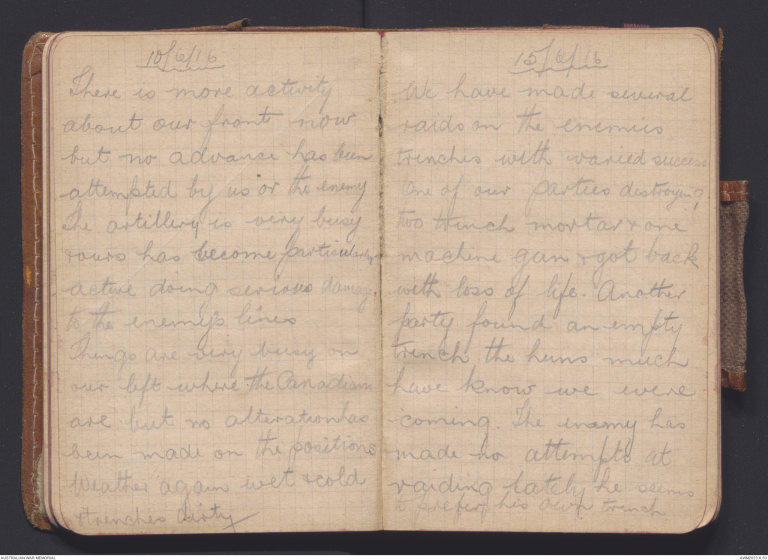 10/6/16
There is more activity
about our front now
but no advance has been
attempted by us or the enemy
The artillery is very busy
& ours has become particularly
active doing serious damage
to the enemy's lines
Things are very busy on
our left where the Canadians
are but no alteration has
been made on the positions
Weather again wet & cold
& trenches dirty
15/6/16
We have made several
raids on the enemies
trenches with varied success
One of our parties destroying
two trench mortar & one
machine gun & got back
with loss of life. Another
party found an empty
trench the huns much
have know we were
coming. The enemy has
made no attempts at
raiding lately he seems
to prefer his own trench
AUSTRALIAN WAR MEMORIAL